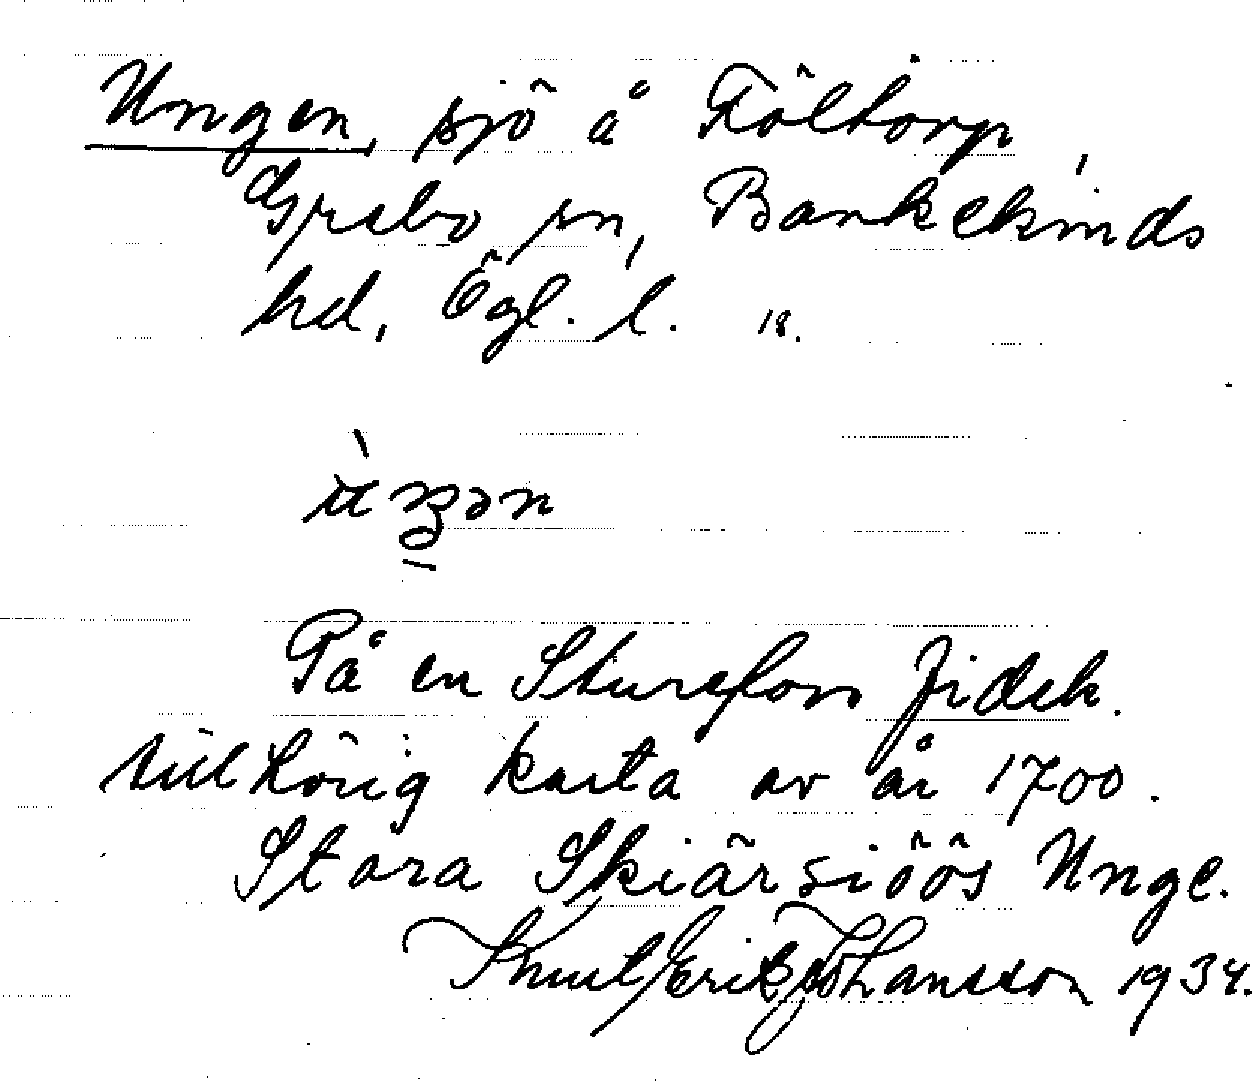 Ungen, sjö å Föltorp,
Grebo sn, Bankekinds
hd, Ögl. l. 18.
På en Sturefors fidek.
tillhörig karta av år 1700.
Stora Skiärsiöös Unge.
Knut Erik Johansson 1934.